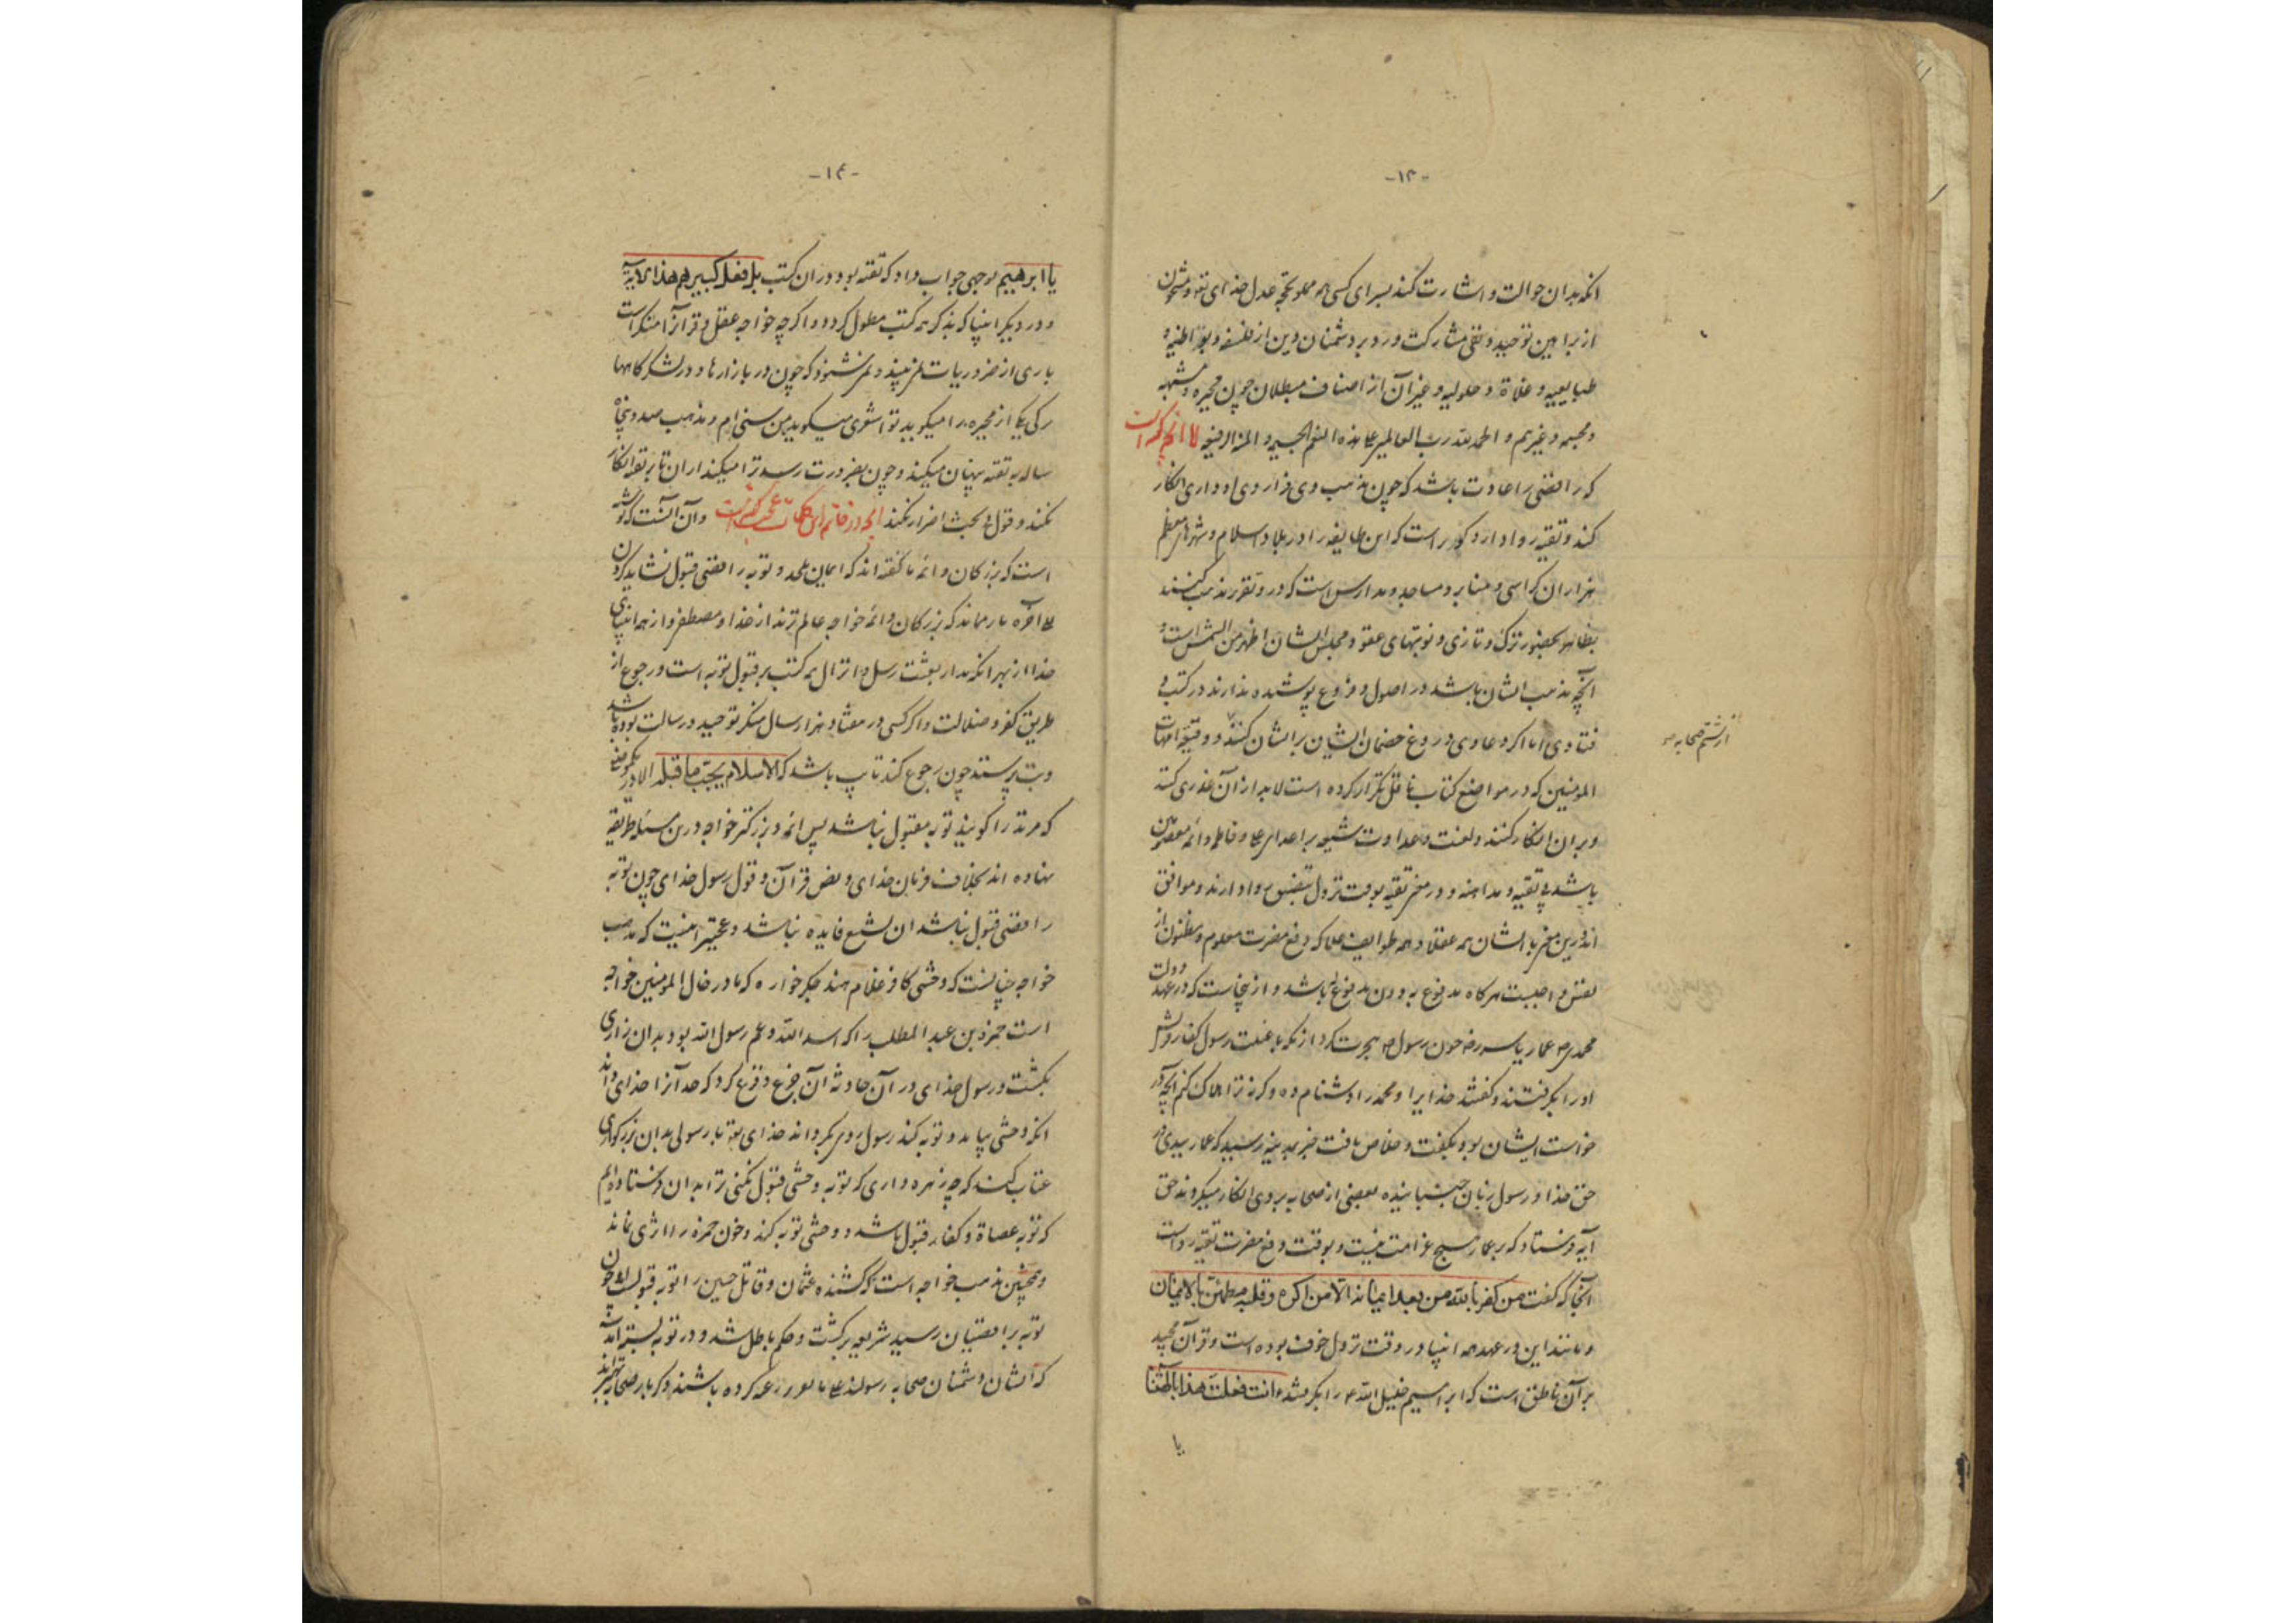 -۱۳-
انکه بدان حوالت و اشارت کند بسرای کسی همه مملو بحجه عدل خدای تع و مشحون
از براهین توحید و نفی مشارکت و رد بر دشمنان دین از فلسفه و بواطنه و
طبایعیه و غلاة و حلولیه و غیر آن از اصناف مبطلان چون مجبره و مشبهه
و مجسمه و غیرهم و الحمد لله رب العالمین علی هذه النعم الجسیمه و المنزله الرفیعه اما انچه گفته است
که رافضی را عادت باشد که چون مذهب وی فرا روی او داری انکار
کند و تقیه روا دارد کور است که این طایفه را در بلاد اسلام و شهرهای معظم
هزاران کراسی و منابر و مساجد و مدارس است که در و تقریر مذهب کنند
بظاهر بحضور ترک و تازی و نوبتهای عقود مجلس ایشان اظهر من الشمس است و
آنچه مذهب ایشان باشد در اصول و فروع پوشیده ندارند در کتب و
فتاوی اما اگر دعاوی دروغ خصمان ایشان بر ایشان کنند و وقیعه امهات
المومنین که در مواضع کتاب ناقل تکرار کرده است لابد از آن عذری کنند
و بر ان انکار کنند و لعنت و عداوت شیعه بر اعدای علی و فاطمه و ائمه معصومین
باشد بی تقیه و مداهنه و در معنی تقیه بوقت نزول بنفس روا دارند و موافق
اند درین معنی با ایشان همه عقلا و همه طوایف علما که دفع مضرت معلوم و مظنون از
نفس واجبست هرگاه مدفوع به و دون مدفوع عنه باشد و از ینجاست که در عهد دولت
محمدی ص عمار یاسر رض چون رسول ص هجرت کرد از مکه با غیبت رسول کفار قریش
او را بگرفتند و گفتند خدا یرا و محمد را دشنام ده و گرنه ترا هلاک کنیم آنچه در
خواست ایشان بود بگفت و خلاص یافت خبر بمدینه رسید که عمار بیدی در
حق خدا و رسول زبان بجنبانیده بعضی از صحابه بر وی انکار میکردند حق تع
آیه فرستاد که بر عمار هیچ غرامت نیست و بوقت دفع مضرت تقیه رواست
آنجا که گفت من کفر بالله من بعد ایمانه الا من اکره و قلبه مطمئن بالایمان
و مانند این در عهد همه انبیا در وقت نزول خوف بوده است و قرآن مجید
بر آن ناطق است که ابراهیم خلیل الله ع را بگرفتند ءانت فعلت هذا بالهتنا
یا
از شتم صحابه
-۱۴-
یا ابرهیم بوجهی جواب داد که تقیه بود در ان کتب بل فعله کبیرهم هذا الایة
و در دیگر انبیا که بذکر همه کتب مطول گردد و اگر چه خواجه عقل و قرآن را منکر است
باری از ضروریات نمی بیند و نمی شنود که چون در بازارها و در لشکرگاهها
ترکی یکی از مجبره را میگوید تو اشعری میگوید من سنی ام و مذهب صد و پنجاه
ساله به تقیه پنهان میکند و چون بضرورت رسد ترا میکند ار ان تا بر تقیه انکار
نکند و قول در بحث اصرار نکند آنچه در خاتمه این کلمات عجب گفته است و آن آنست که نوشته
است که بزرگان و ائمه ما گفته اند که ایمان ملحد و توبه رافضی قبول نشاید کردن
الی آخره بار مماند که بزرگان و ائمه خواجه عالم ترند از خدا و مصطفی و از همه انبیای
خدا از بهر انکه مدار بعثت رسل و انزال همه کتب بر قبول توبه است و رجوع از
طریق کفر و ضلالت و اگر کسی در هفتاد و هزار سال منکر توحید و رسالت بوده باشد
و بت پرستد چون رجوع کند تایب باشد که الاسلام یجب ما قبله الا در یکموضع
که مرتد را گویند توبه مقبول نباشد پس ائمه و بزرگتر خواجه درین مسئله طریقه
نهاده اند بخلاف فرمان خدای و نص قرآن و قول رسول خدای چون توبه
رافضی قبول نباشد ان تشنیع فایده نباشد و عجبتر اینست که مذهب
خواجه چنانست که وحشی کافر غلام هند جگر خواره که مادر خال المومنین خواجه
است حمزة بن عبد المطلب را که اسد الله و عم رسول الله بود بدان زاری
بکشت و رسول خدای در آن حادثه آن جزع و فزع کرد که حد آنرا خدای داند
انکه وحشی بیاید و توبه کند رسول روی بگرداند خدای تع با رسولی بدان بزرگواری
عتاب کند که چه زهره داری که توبه وحشی قبول نکنی ترا بدان فرستاده ایم
که توبه عصاة و کفار قبول باشد و وحشی توبه کند و خون حمزه را اثری نماند
و همچنین مذهب خواجه است که کشنده عثمان و قاتل حسین را توبه قبولست و چون
توبه برافضیان رسید شریعت برگشت و حکم باطل شد و در توبه بسته اند
که ایشان دشمنان صحابه رسولند علی ما کرده باشند و کر بار صحابه